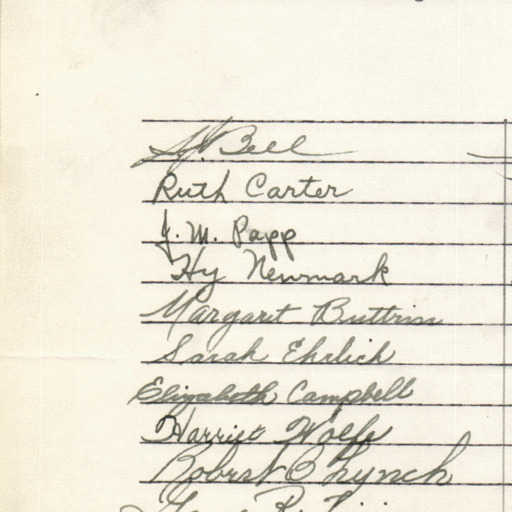 Bell
Ruth Carter
J. M. Papp
Hy Newmark
Margaret Buttrim
Sarah Ehrlich
Elizabeth Campbell
Harriet Wolfe
Robert B Lynch